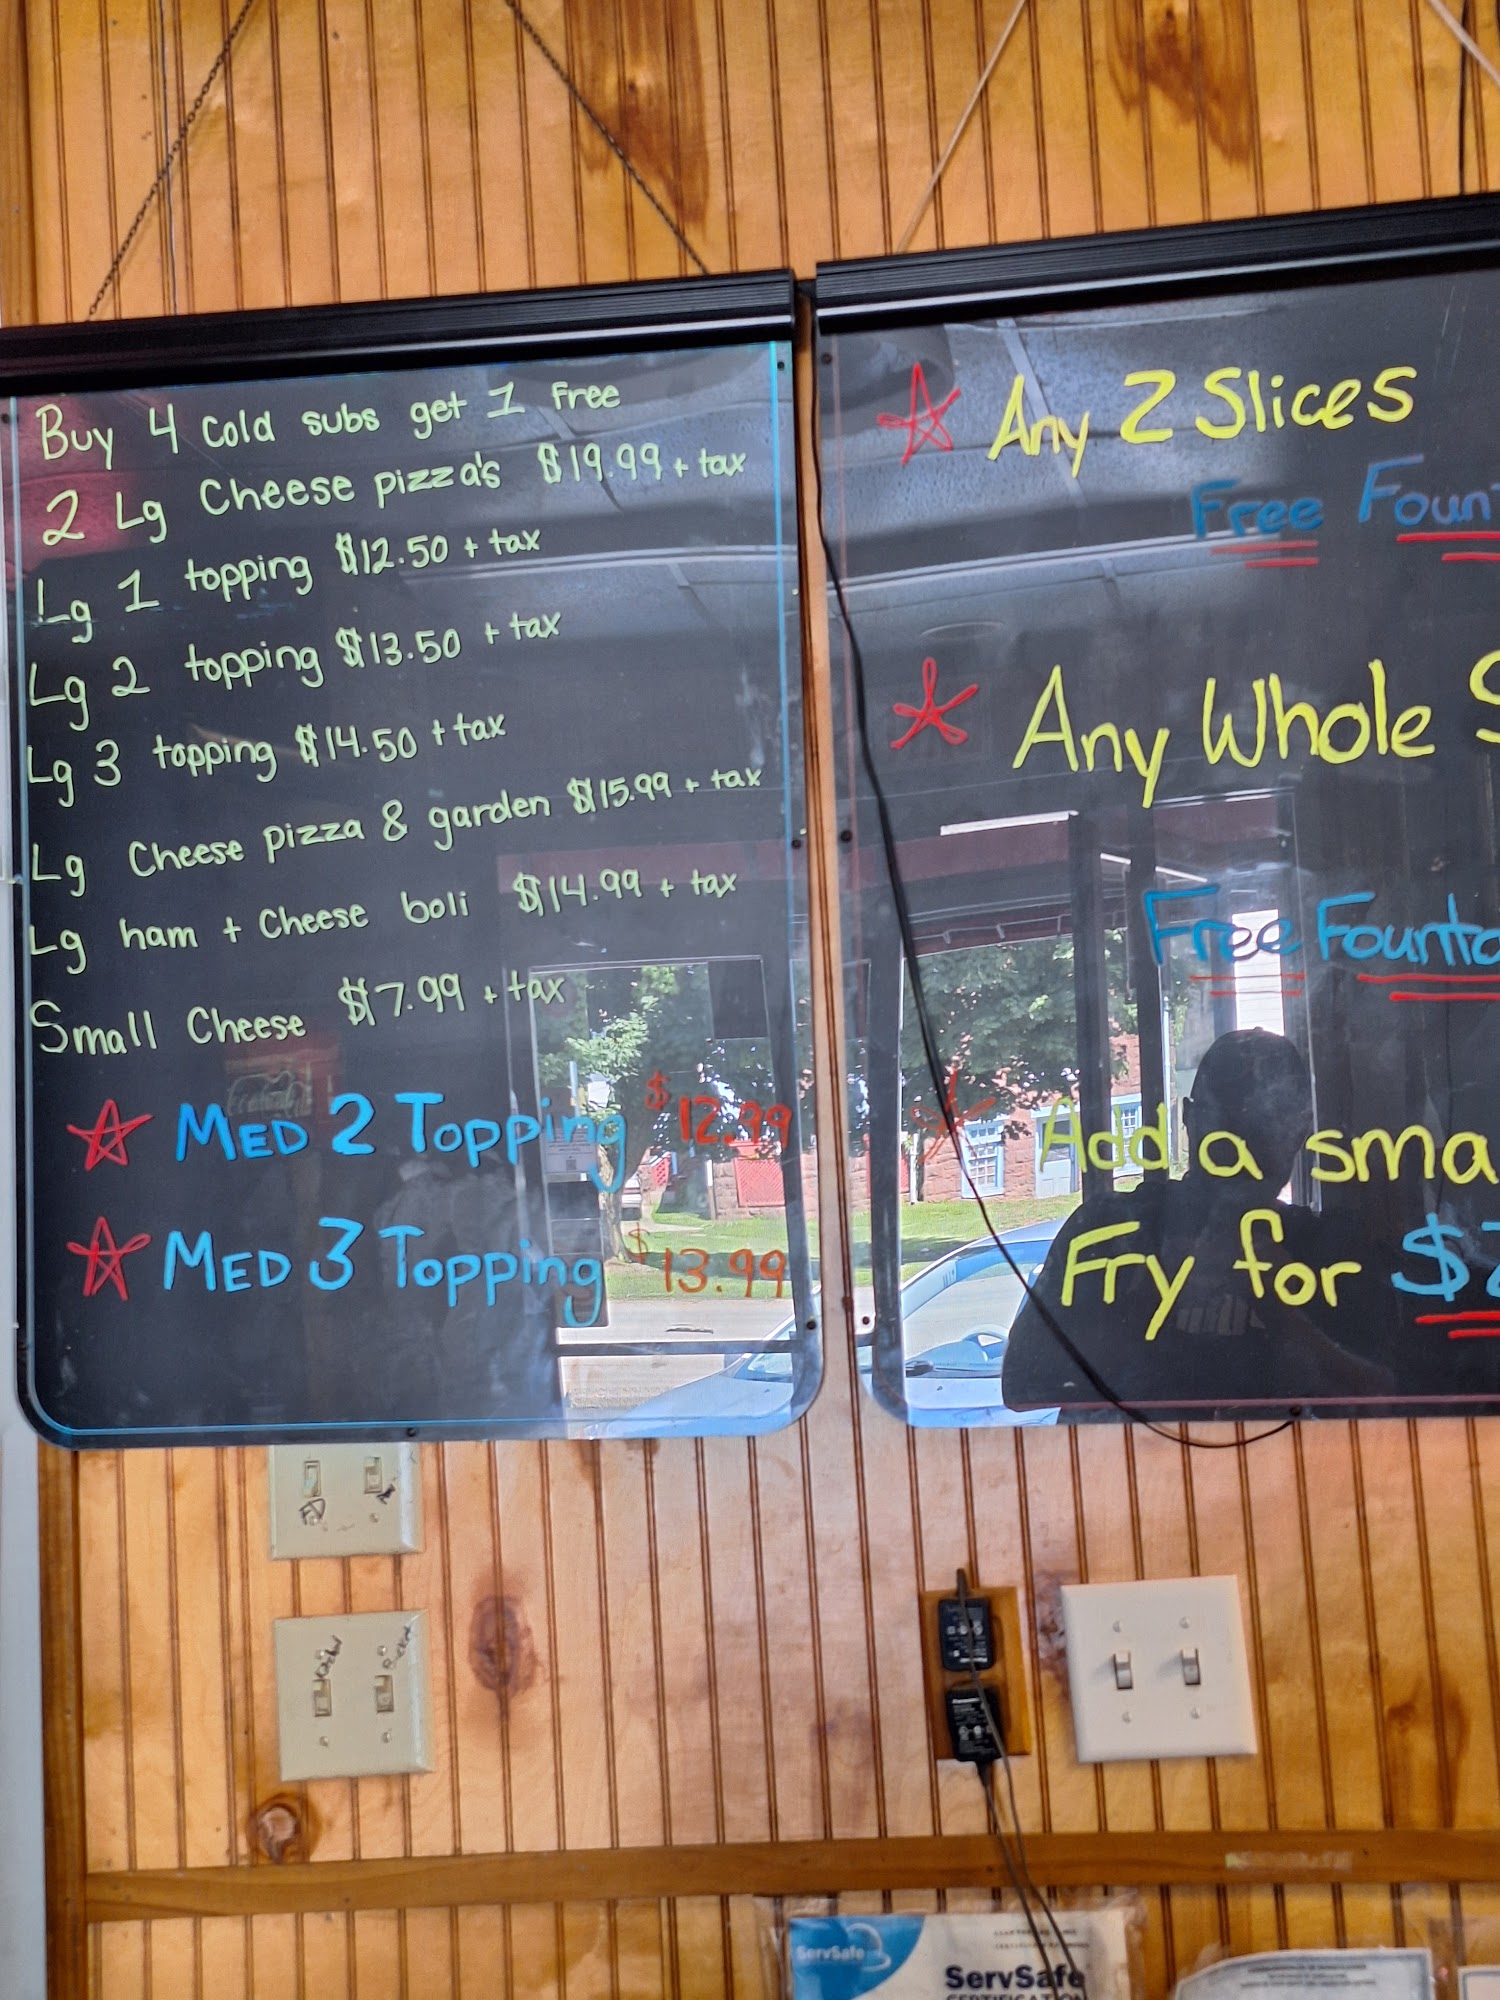 Buy 4 cold subs get 1 Free
2 Lg Cheese pizza's $19.99 + tax
Lg 1 topping $12.50 + tax
Lg 2 topping $13.50 + tax
Lg 3 topping $14.50 + tax
Lg Cheese pizza & garden $15.99 + tax
Lg ham + Cheese boli $14.99 + tax
Small Cheese $7.99 + tax
MED 2 Topping $12.99
MED 3 Topping $13.99
Any 2 Slices
Free Foun
Any Whole S
Free Founta
Add a sma
Fry for $
ServSafe
ServSafe
CERTIFICATION